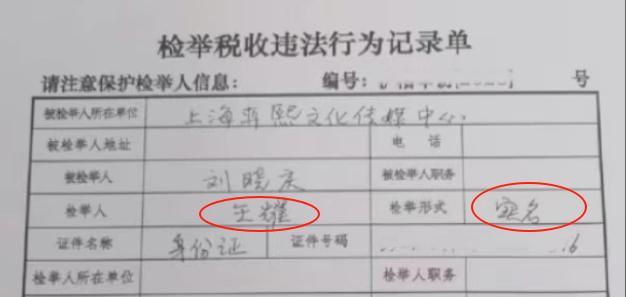 检举税收违法行为记录单
请注意保护检举人信息： 编号： 号
被检举人所在单位 上海 熙文化传媒中心
被检举人地址 电 话
被检举人 刘晓庆 被检举人职务
检举人 王耀 检举形式 实名
证件名称 身份证 证件号码 6
检举人所在单位 检举人职务